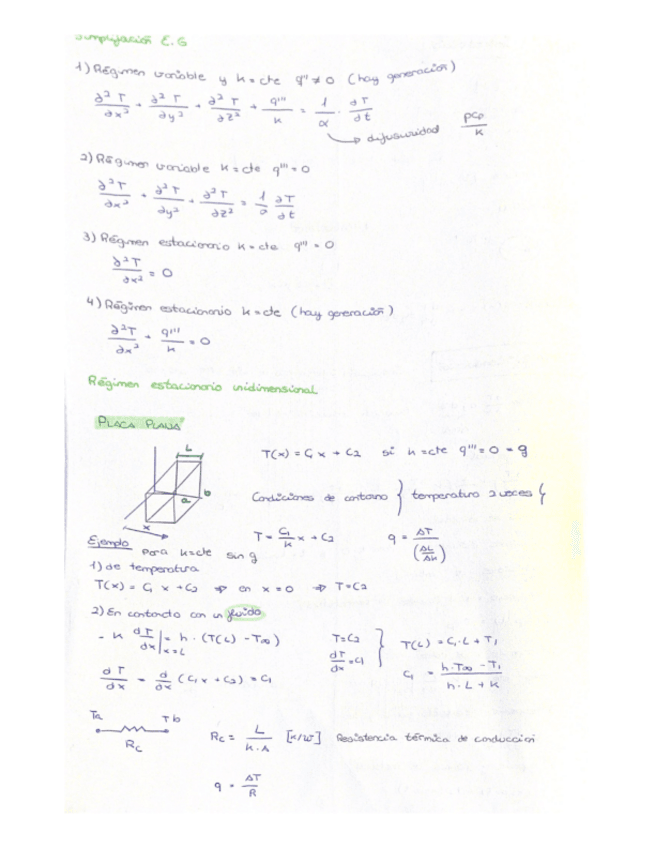 Simplificación E.G
1) Régimen variable y k=cte q''' ≠ 0 (hay generación)
∂²T/∂x² + ∂²T/∂y² + ∂²T/∂z² + q'''/k = 1/α · ∂T/∂t
→ difusividad ρCp/k
2) Régimen variable k=cte q'''=0
∂²T/∂x² + ∂²T/∂y² + ∂²T/∂z² = 1/α ∂T/∂t
3) Régimen estacionario k=cte q''' = 0
∂²T/∂x² = 0
4) Régimen estacionario k=cte (hay generación)
∂²T/∂x² + q'''/k = 0
Régimen estacionario unidimensional.
PLACA PLANA
L
a
b
x
T(x) = C₁x + C₂ si k=cte q'''=0=g
Condiciones de contorno } temperatura 2 veces
T = C₁/k x + C₂ q = ΔT/(ΔL/Ak)
Ejemplo para k=cte sin g
1) de temperatura
T(x) = C₁x + C₂ ⇒ en x=0 ⇒ T=C₂
2) En contacto con un fluido
- k dT/dx|x=L = h · (T(L) - T∞)
T=C₂
dT/dx = C₁
} T(L) = C₁·L + T₁
dT/dx = d/dx (C₁x + C₂) = C₁
C₁ = h·T∞ - T₁/h·L + k
Ta Tb
Rc
Rc = L/k·A [K/W] Resistencia térmica de conducción
q = ΔT/R